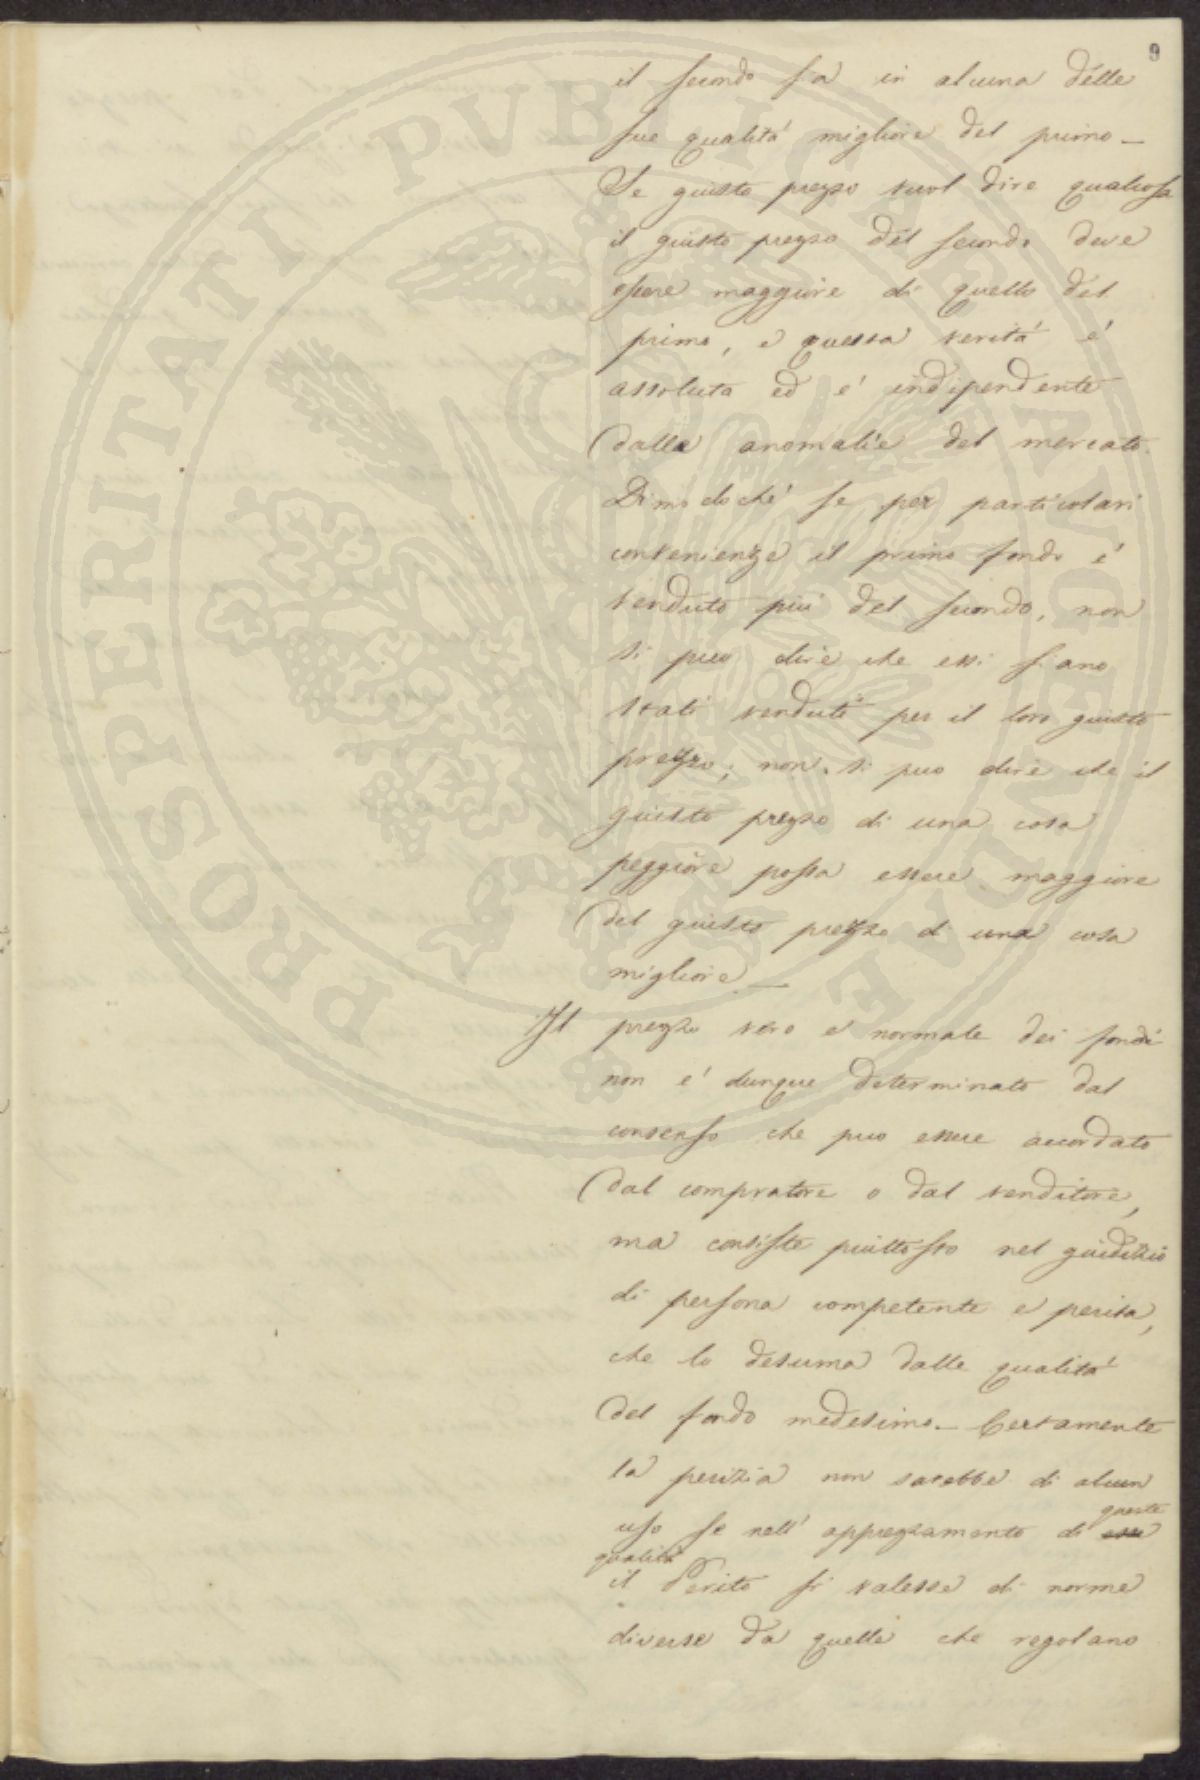 9
il secondo sia in alcuna delle
sue qualità migliore del primo_
Se giusto prezzo vuol dire qualcosa
il giusto prezzo del secondo deve
essere maggiore di quello del
primo, e questa verità é
assoluta ed é indipendente
dalle anomalie del mercato.
Dimodoché se per particolari
convenienze il primo fondo é
venduto piú del secondo, non
si puo dire che essi siano
stati venduti per il loro giusto
prezzo; non si puo dire che il
giusto prezzo di una cosa
peggiore possa essere maggiore
del giusto prezzo di una cosa
migliore_
Il prezzo vero e normale dei fondi
non é dunque determinato dal
consenso che puo essere accordato
dal compratore o dal venditore,
ma consiste piuttosto nel giudizio
di persona competente e perita,
che lo desuma dalle qualità
del fondo medesimo_ Certamente
la perizia non sarebbe di alcun
uso se nell' apprezzamento di queste
qualità
il Perito si valesse di norme
diverse da quelle che regolano
PROSPERITATI PUBLICAE AUGENDAE